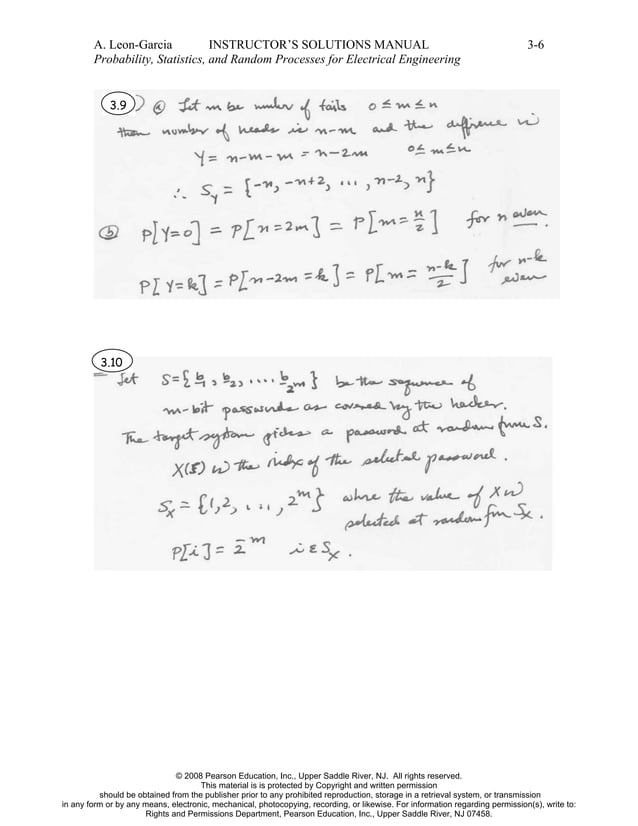 A. Leon-Garcia INSTRUCTOR'S SOLUTIONS MANUAL 3-6
Probability, Statistics, and Random Processes for Electrical Engineering
3.9 ⓐ Let m be number of tails 0 ≤ m ≤ n
then number of heads is n-m and the difference is
Y = n-m-m = n-2m 0 ≤ m ≤ n
∴ S_Y = {-n, -n+2, ..., n-2, n}
ⓑ P[Y=0] = P[n=2m] = P[m = n/2] for n even.
P[Y=k] = P[n-2m=k] = P[m = (n-k)/2] for n-k even
3.10
Let S = {b_1, b_2, .... b_2^m} be the sequence of
m-bit passwords as covered by the hacker.
The target system picks a password at random from S.
X(ξ) is the index of the selected password.
S_X = {1,2, ..., 2^m} where the value of X is
selected at random from S_X.
P[i] = 2^-m i ε S_X.
© 2008 Pearson Education, Inc., Upper Saddle River, NJ. All rights reserved.
This material is is protected by Copyright and written permission
should be obtained from the publisher prior to any prohibited reproduction, storage in a retrieval system, or transmission
in any form or by any means, electronic, mechanical, photocopying, recording, or likewise. For information regarding permission(s), write to:
Rights and Permissions Department, Pearson Education, Inc., Upper Saddle River, NJ 07458.